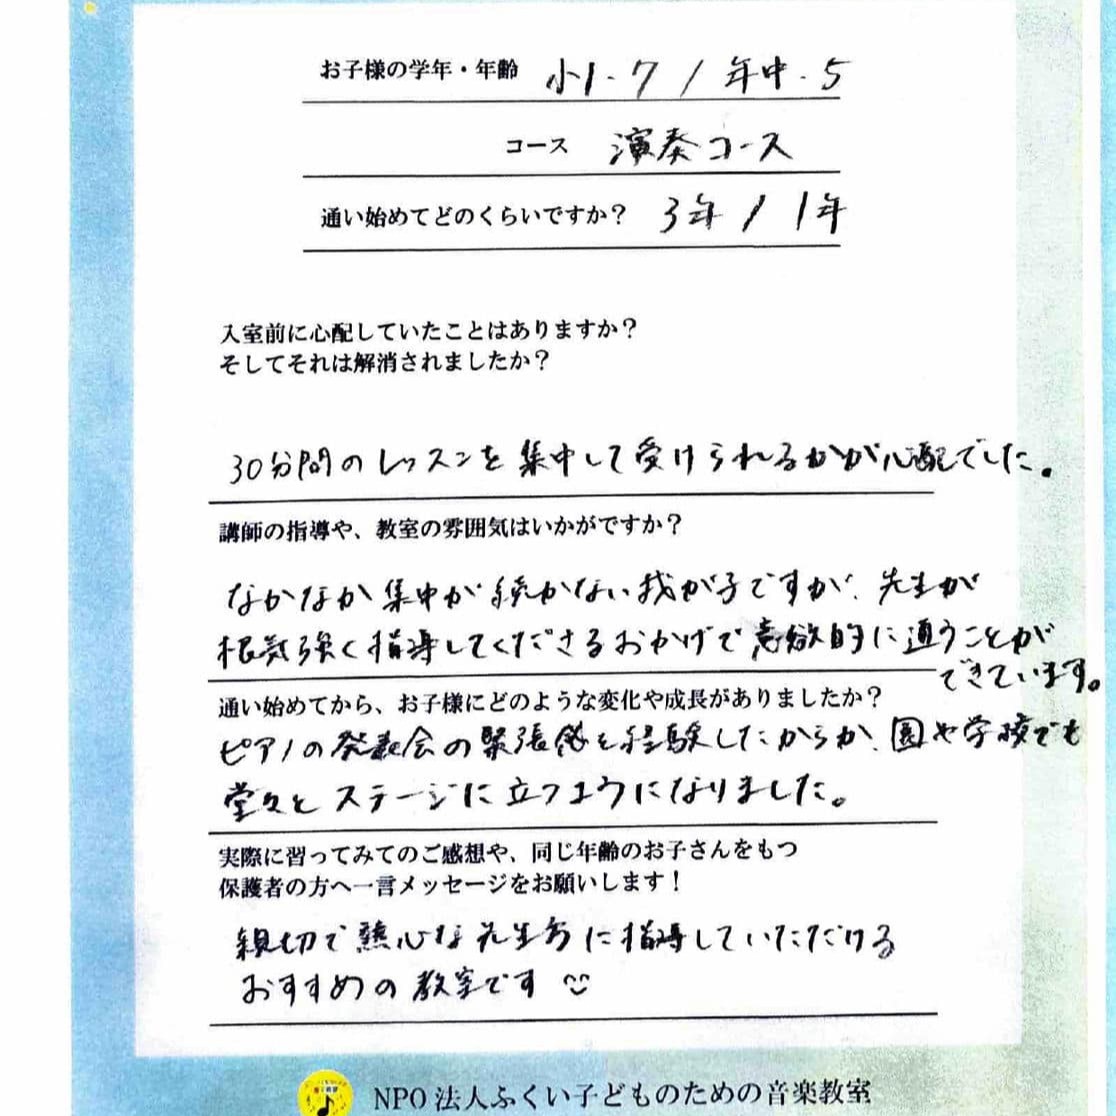 お子様の学年・年齢 小1・7 / 年中・5
コース 演奏コース
通い始めてどのくらいですか? 3年 / 1年
入室前に心配していたことはありますか?
そしてそれは解消されましたか?
30分間のレッスンを集中して受けられるかが心配でした。
講師の指導や、教室の雰囲気はいかがですか?
なかなか集中が続かない我が子ですが、先生が
根気強く指導してくださるおかげで意欲的に通うことが
できています。
通い始めてから、お子様にどのような変化や成長がありましたか?
ピアノの発表会の緊張感を経験したからか、園や学校でも
堂々とステージに立つようになりました。
実際に習ってみてのご感想や、同じ年齢のお子さんをもつ
保護者の方へ一言メッセージをお願いします!
親切で熱心な先生方に指導していただける
おすすめの教室です
NPO法人ふくい子どものための音楽教室